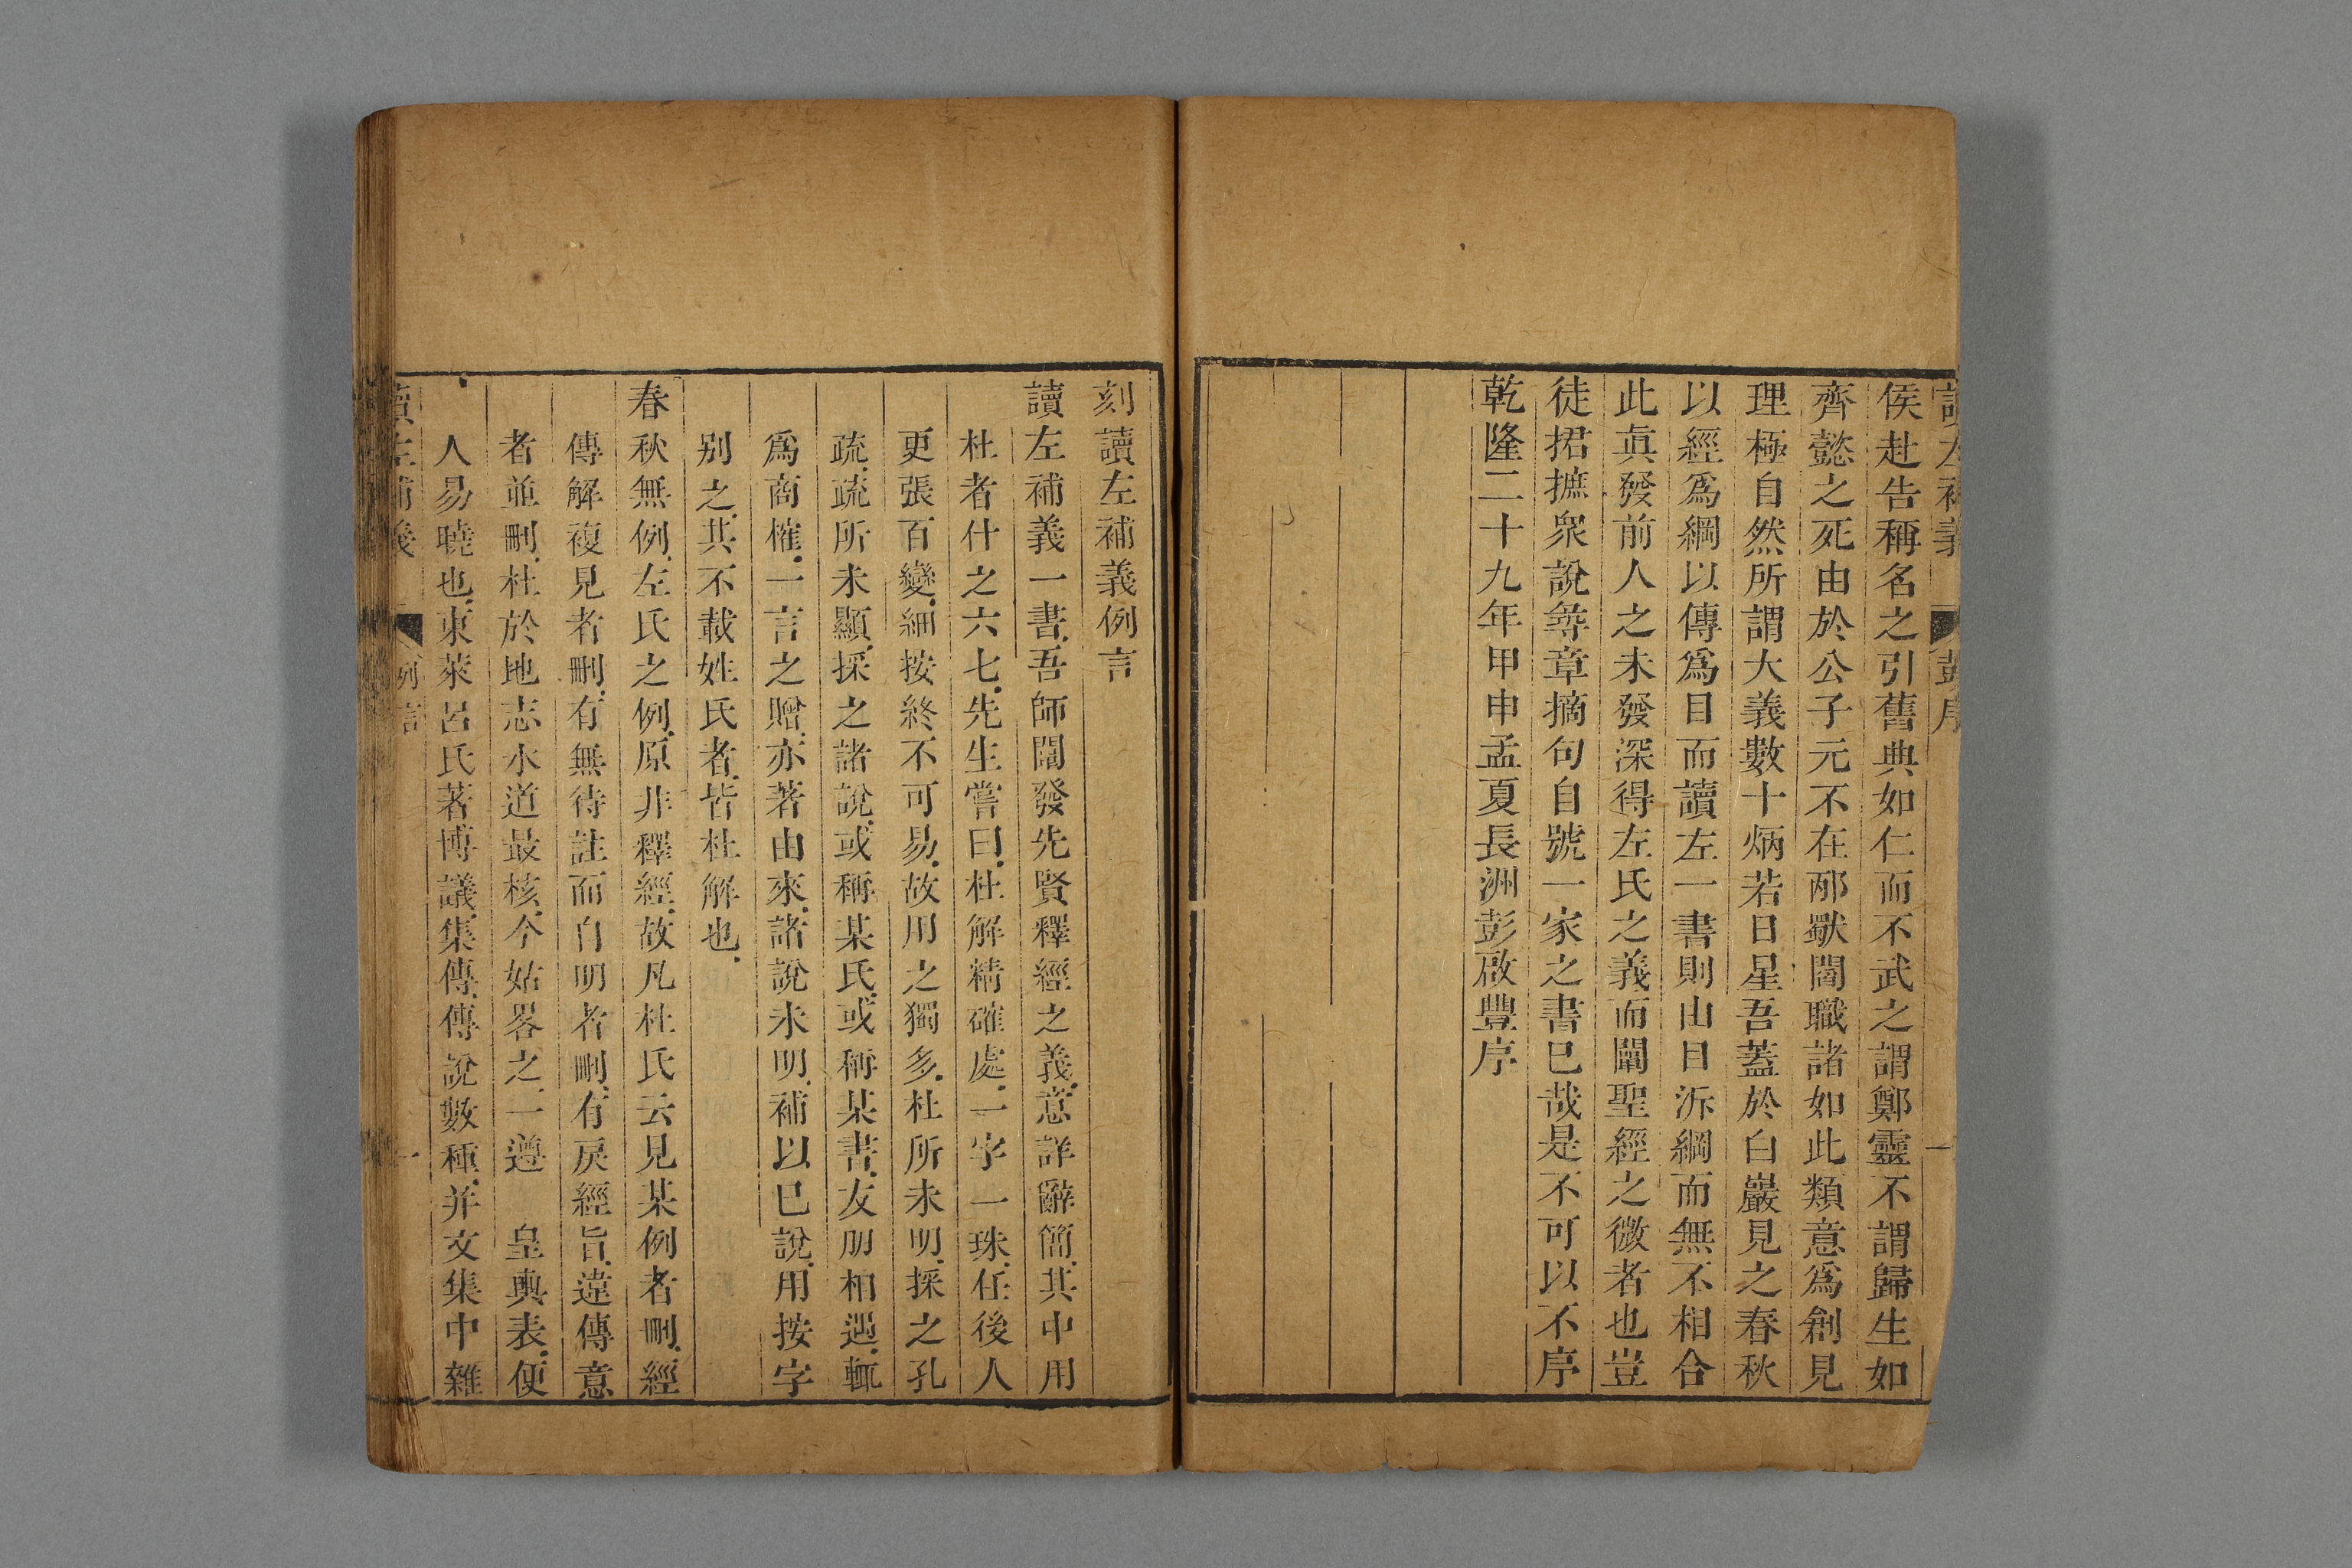 讀左補義 彭序 一
侯赴告稱名之引舊典如仁而不武之謂鄭靈不謂歸生如
齊懿之死由於公子元不在邴歜閻職諸如此類意爲創見
理極自然所謂大義數十炳若日星吾蓋於白巖見之春秋
以經爲綱以傳爲目而讀左一書則由目泝綱而無不相合
此眞發前人之未發深得左氏之義而闡聖經之微者也豈
徒捃摭衆說尋章摘句自號一家之書已哉是不可以不序
乾隆二十九年甲申孟夏長洲彭啟豐序
刻讀左補義例言
讀左補義一書吾師闡發先賢釋經之義意詳辭簡其中用
杜者什之六七先生嘗曰杜解精確處一字一珠任後人
更張百變細按終不可易故用之獨多杜所未明採之孔
疏疏所未顯採之諸說或稱某氏或稱某書友朋相遇輒
爲商榷一言之贈亦著由來諸說未明補以已說用按字
别之其不載姓氏者皆杜解也
春秋無例左氏之例原非釋經故凡杜氏云見某例者刪經
傳解複見者刪有無待註而自明者刪有戾經旨違傳意
者並刪杜於地志水道最核今姑畧之一遵 皇輿表便
人易曉也東萊呂氏著博議集傳傳說數種并文集中雜
讀左補義 例言 一